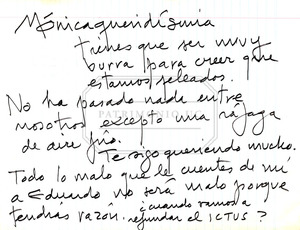 Mónicaqueridísimia
tienes que ser muy
burra para creer que
estamos peleados.
No ha pasado nada entre
nosotros excepto una ráfaga
de aire frío.
Te sigo queriendo mucho.
Todo lo malo que le cuentes de mí
a Eduardo no será malo porque
tendrás razón. ¿cuando vamos a
refundar el ICTUS?